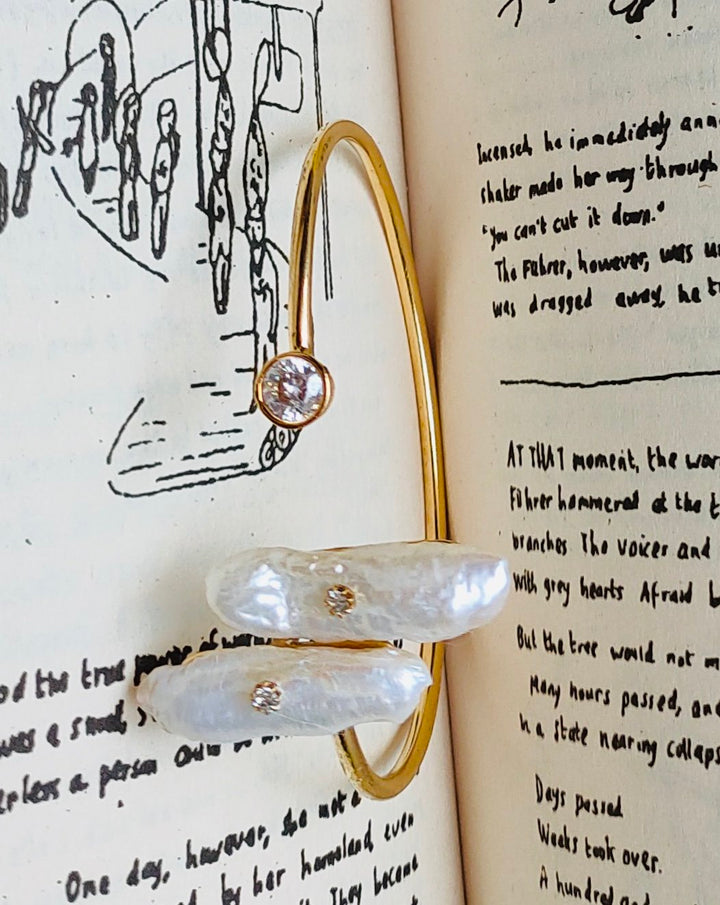 od the true power of
was a small,
erless a person
One day, however, she not a
by her homeland, even
They became
Incensed, he immediately
shaker made her way through
"You can't cut it down."
The Führer, however, was
was dragged away, he
AT THAT moment, the
Führer hammered at the
branches The voices and
with grey hearts Afraid
But the tree would not
Many hours passed, and
in a state nearing collaps
Days passed
Weeks took over.
A hundred and